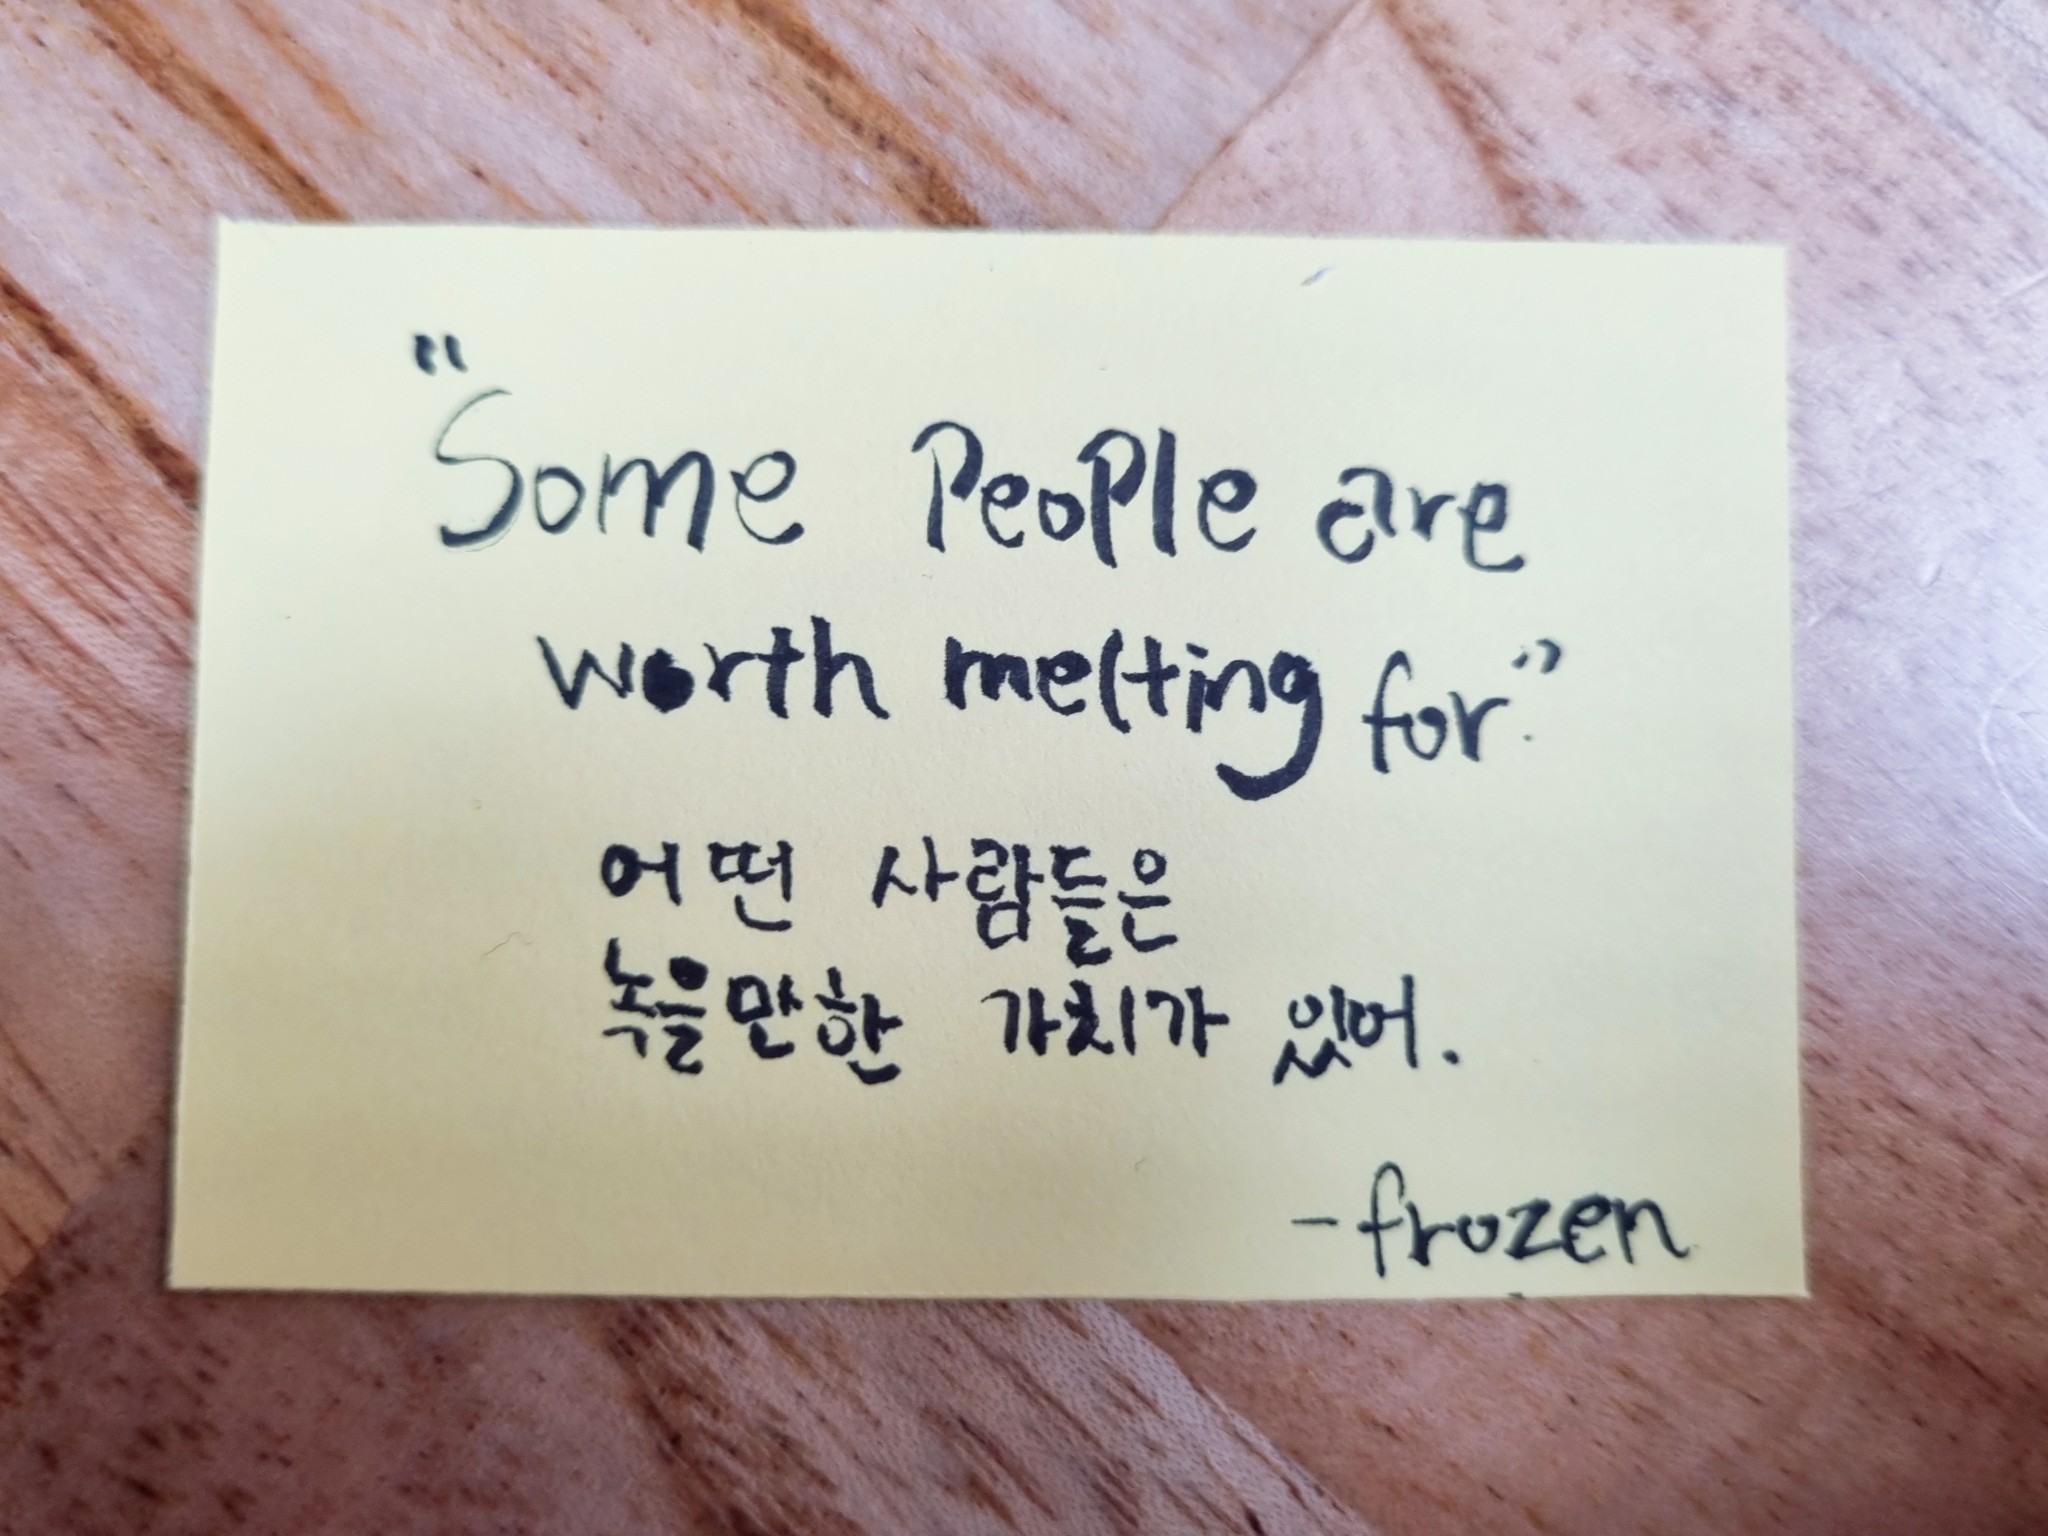 "Some People are
worth melting for."
어떤 사람들은
녹을만한 가치가 있어.
-frozen